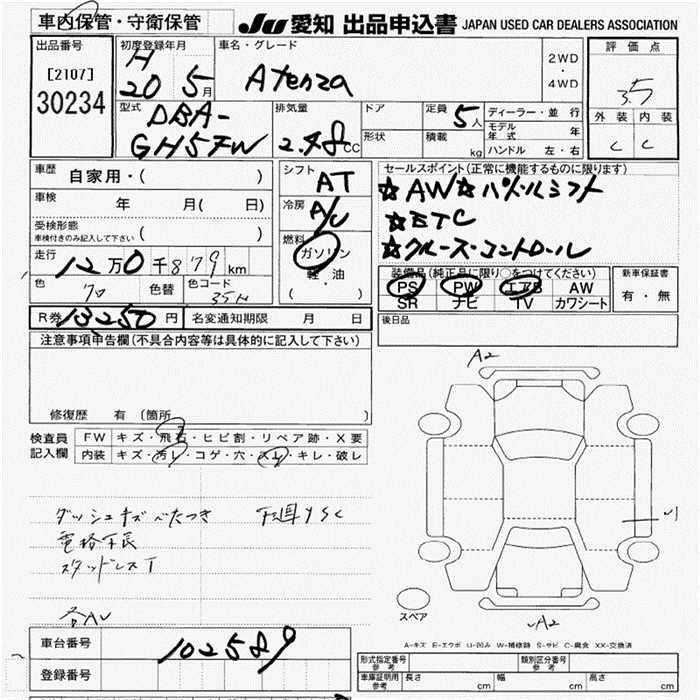 車内保管・守衛保管
JU 愛知 出品申込書 JAPAN USED CAR DEALERS ASSOCIATION
出品番号
[2107]
30234
初度登録年月
H
20 5月
車名・グレード
Atenza
2WD
・
4WD
評価点
3.5
外装 内装
C C
型式
DBA-
GH5FW
排気量
2.48cc
ドア
形状
定員 5人
積載 kg
ディーラー・並行
モデル年式 年
ハンドル 左・右
車歴
自家用・( )
車検
年 月( 日)
受検形態
車検付きのみ記入して下さい ( )
走行
12万0千879km
色 70 色替 色コード 35H
R券 13250円 名変通知期限 月 日
シフト
AT
冷房
A/C
燃料
ガソリン
軽・油
( )
セールスポイント(正常に機能するものに限ります)
☆AW☆パドルシフト
☆ETC
☆クルーズ・コントロール
装備品(純正品に限り○をつけてください)
PS PW エアB AW
SR ナビ TV カワシート
新車保証書
有・無
後日品
注意事項申告欄(不具合内容等は具体的に記入して下さい)
修復歴 有 〔箇所 〕
検査員
記入欄
FW キズ・飛石・ヒビ割・リペア跡・X要
内装 キズ・汚レ・コゲ・穴・スレ・キレ・破レ
ダッシュキズベたつき 下廻りSC
電格不良
スタッドレスT
各AU
A2
U1
A2
スペア
A-キズ E-エクボ U-凹み W-補修跡 S-サビ C-腐食 XX-交換済
車台番号 102589
登録番号
形式指定番号
参考
類別区分番号
参考
車庫証明用
参考
長さ cm 幅 cm 高さ cm